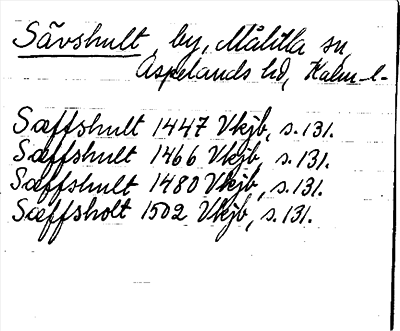 Sävshult, by, Målilla sn,
Aspelands hd, Kalm. l.
Sæffshult 1447 Vkjb, s. 131.
Sæffshult 1466 Vkjb, s. 131.
Sæffshult 1480 Vkjb, s. 131.
Sæffsholt 1502 Vkjb, s. 131.